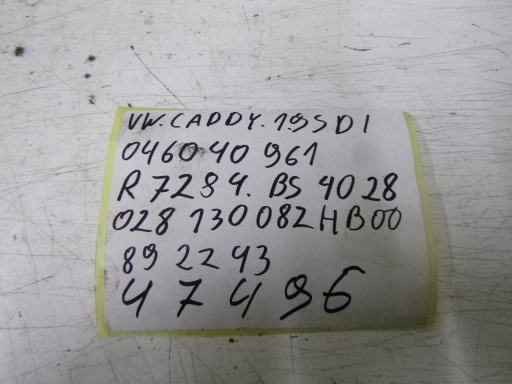 VW.CADDY.1.9SDI
0460 40 961
R 7284. BS 4028
028 130 082 H B00
89 22 43
47496